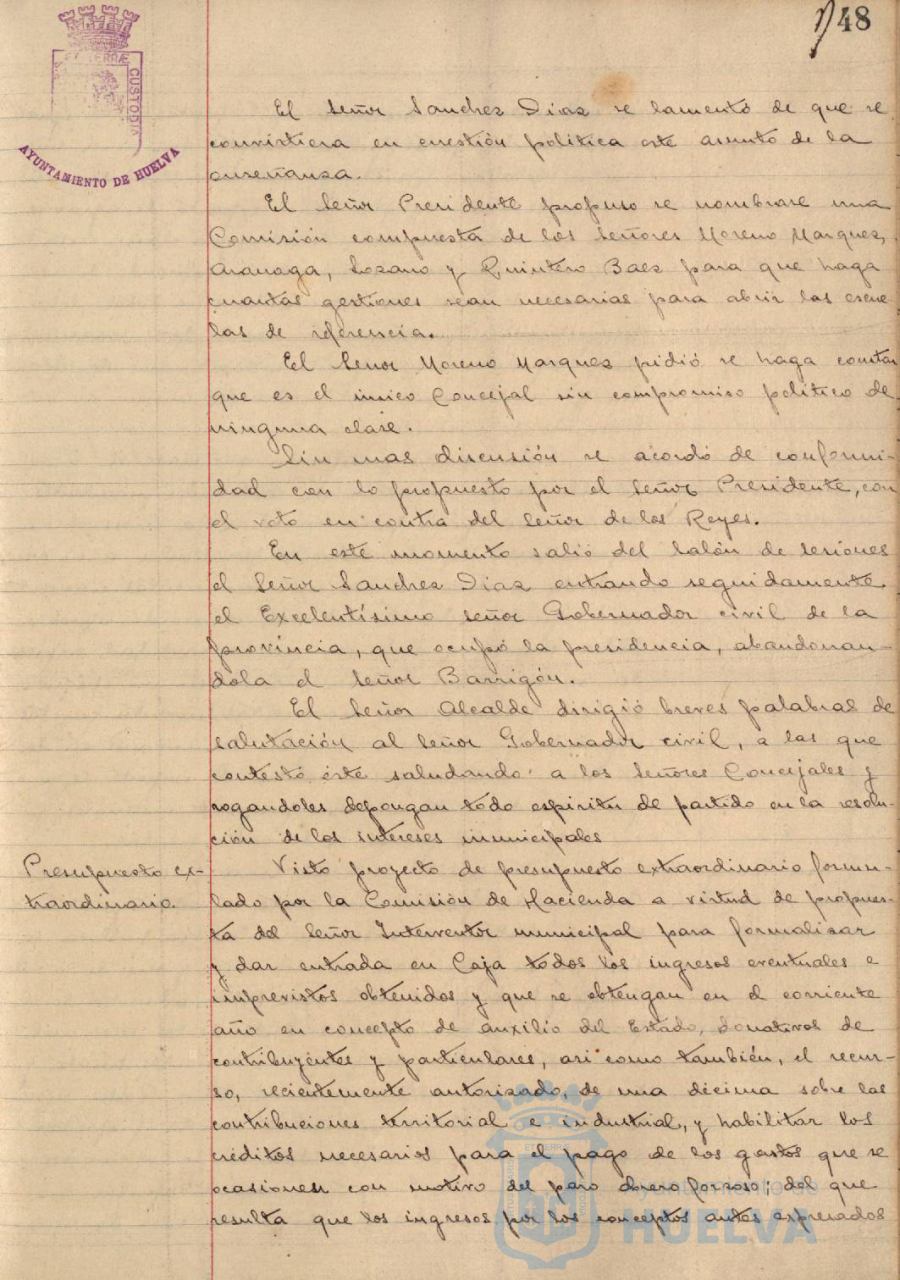 48
PORTUS MARIS ET TERRÆ CUSTODIA
AYUNTAMIENTO DE HUELVA
El Señor Sanchez Diaz se lamentó de que se
convirtiera en cuestión politica este asunto de la
enseñanza.
El Señor Presidente propuso se nombrase una
Comisión compuesta de los Señores Moreno Marquez,
Aranaga, Lozano y Quintero Baez para que haga
cuantas gestiones sean necesarias para abrir las escue
las de referencia.
El Señor Moreno Marquez pidió se haga constar
que es el unico Concejal sin compromiso político de
ninguna clase.
Sin mas discusión se acordó de conformi-
dad con lo propuesto por el Señor Presidente, con
el voto en contra del Señor de los Reyes.
En este momento salió del Salón de Sesiones
el Señor Sanchez Diaz entrando seguidamente
el Excelentísimo señor Gobernador civil de la
provincia, que ocupó la presidencia, abandonan-
dola el Señor Barrigón.
El Señor Alcalde dirigió breves palabras de
salutación al Señor Gobernador civil, a las que
contestó éste saludando a los Señores Concejales y
rogandoles depongan todo espiritu de partido en la resolu-
ción de los intereses municipales
Presupuesto ex-
traordinario.
Visto proyecto de presupuesto extraordinario formu-
lado por la Comisión de Hacienda a virtud de propues-
ta del Señor Interventor municipal para formalizar
y dar entrada en Caja todos los ingresos eventuales e
imprevistos obtenidos y que se obtengan en el corriente
año en concepto de auxilio del Estado, donativos de
contribuyentes y particulares, asi como también, el recur-
so, recientemente autorizado, de una décima sobre las
contribuciones territorial e industrial, y habilitar los
créditos necesarios para el pago de los gastos que se
ocasionen con motivo del paro obrero forzoso; del que
resulta que los ingresos por los conceptos antes expresados
Ayuntamiento de
HUELVA